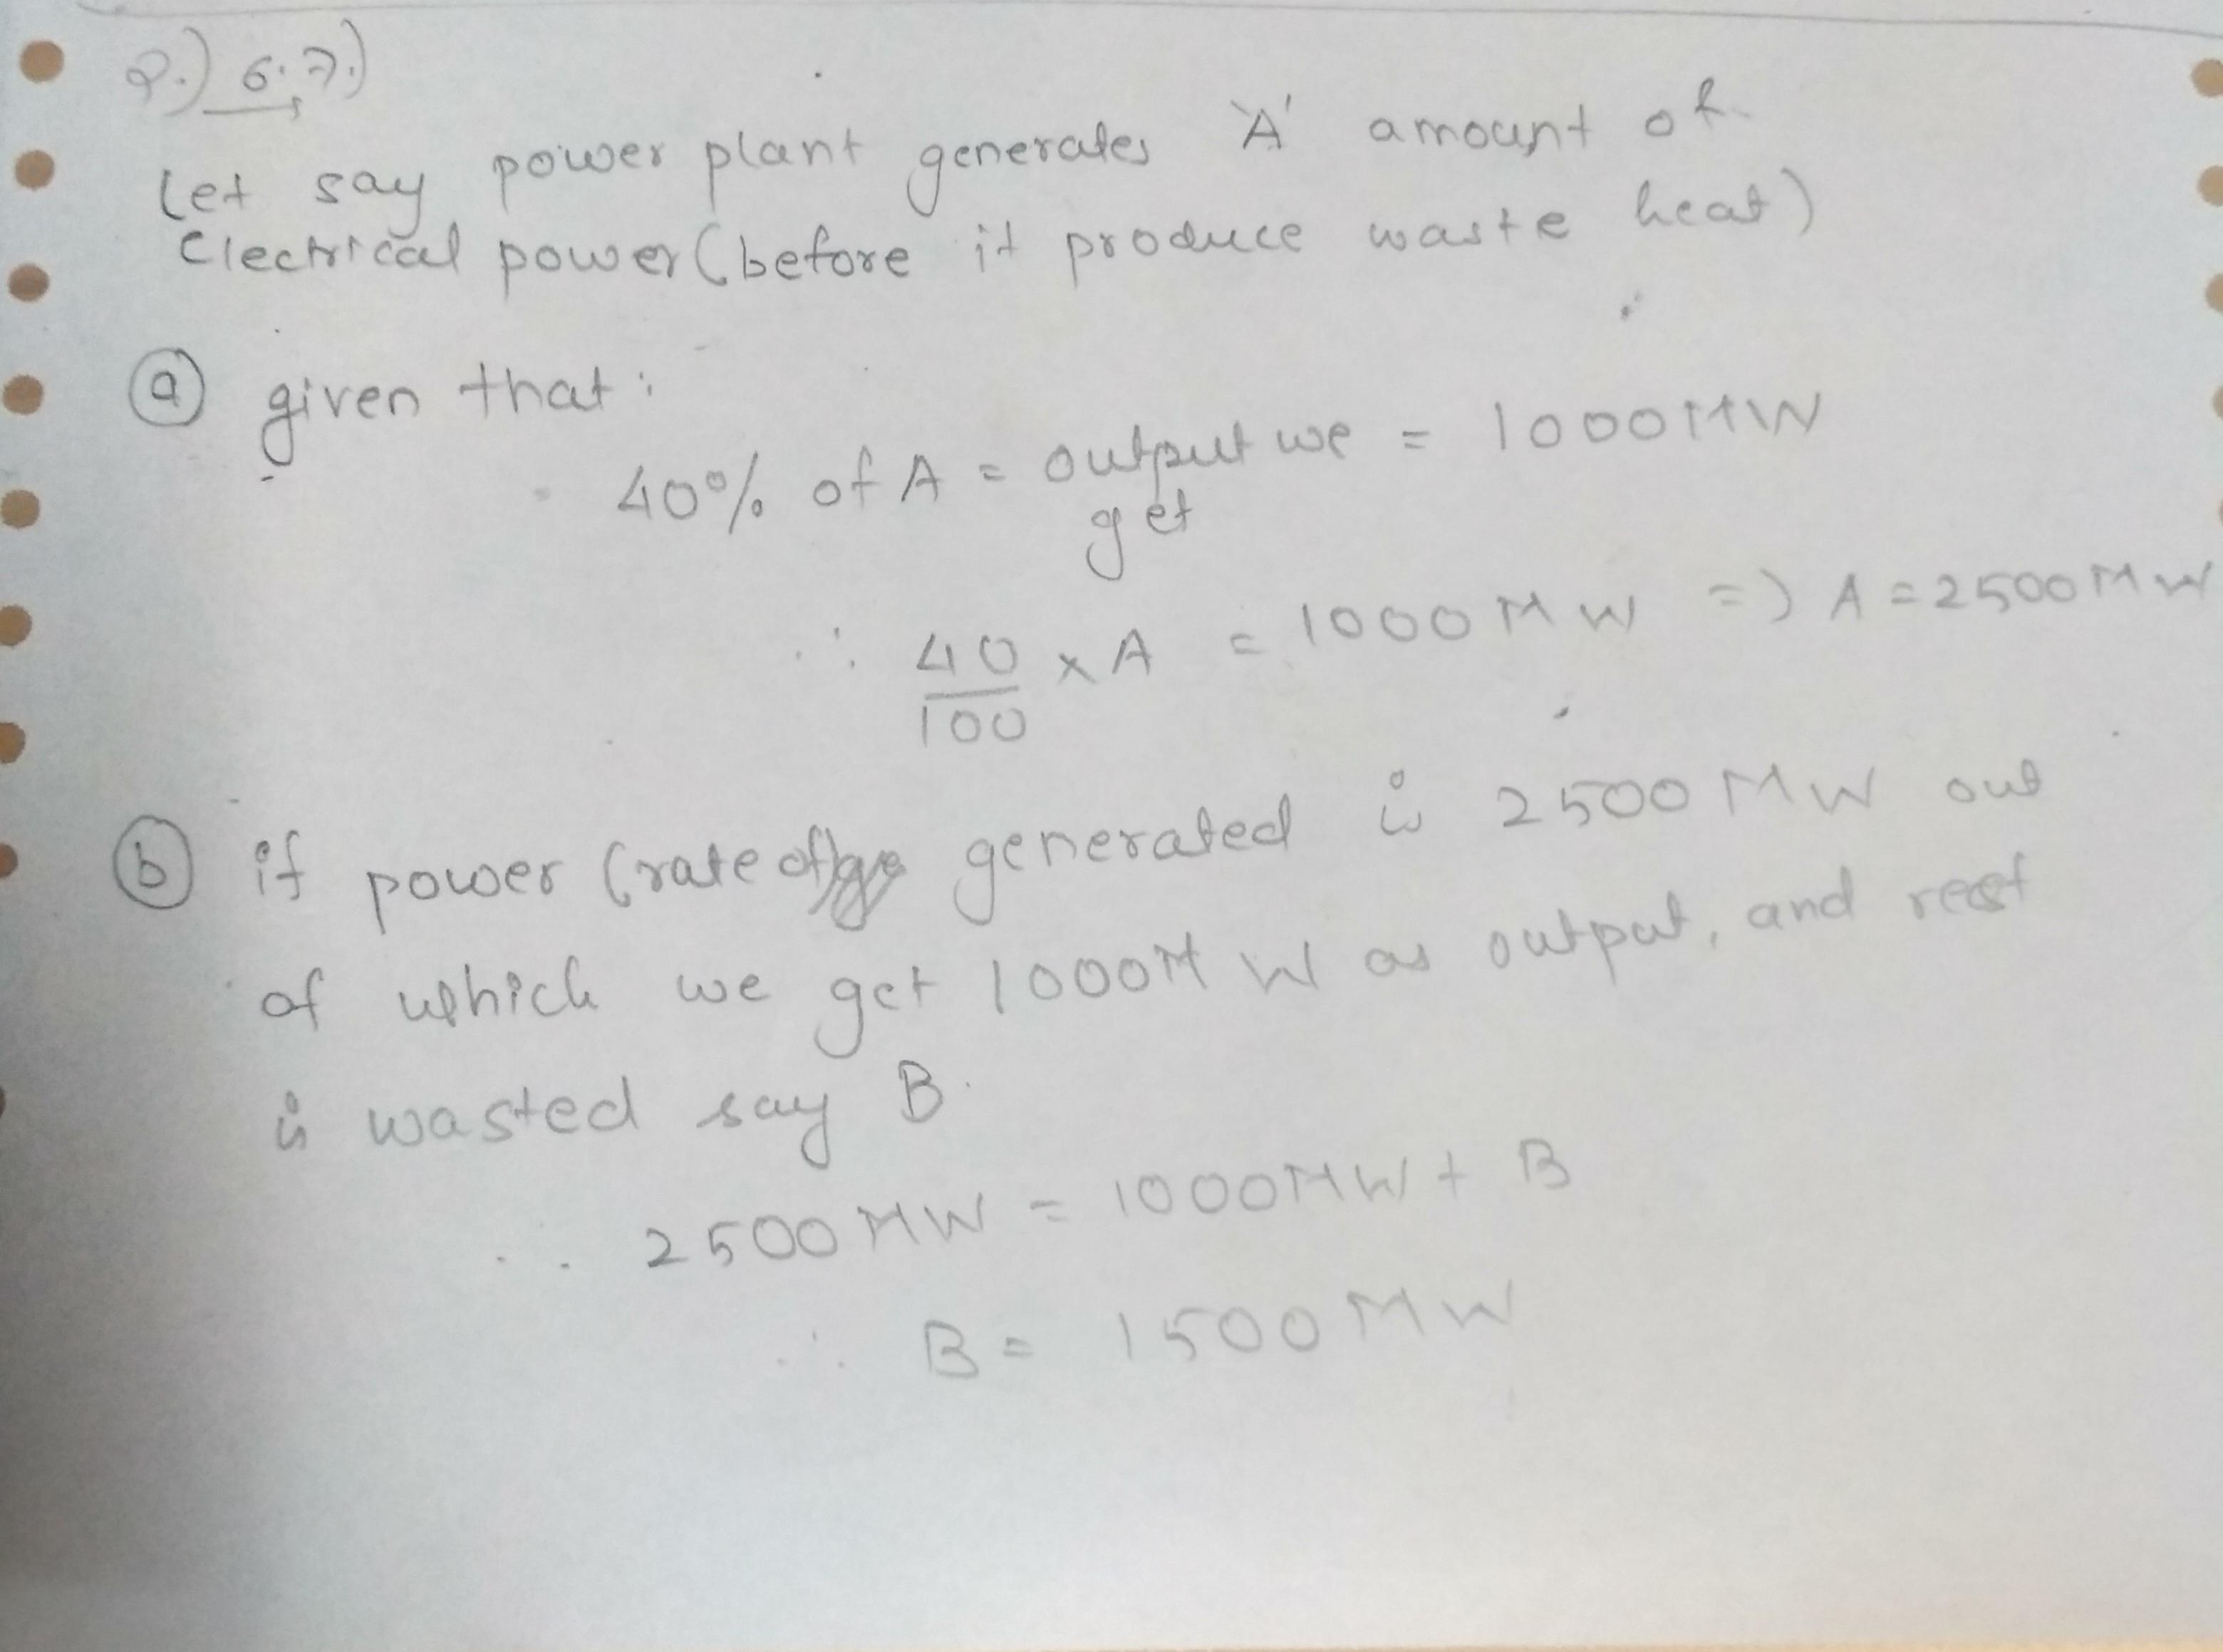 Q.) 6.7.)
Let say power plant generates 'A' amount of
Electrical power (before it produce waste heat)
ⓐ given that:
40% of A = output we get = 1000MW
∴ 40/100 × A = 1000MW => A = 2500MW
ⓑ if power (rate of generated is 2500 MW out
of which we get 1000M W as output, and rest
is wasted say B.
∴ 2500 MW = 1000MW + B
∴ B = 1500MW